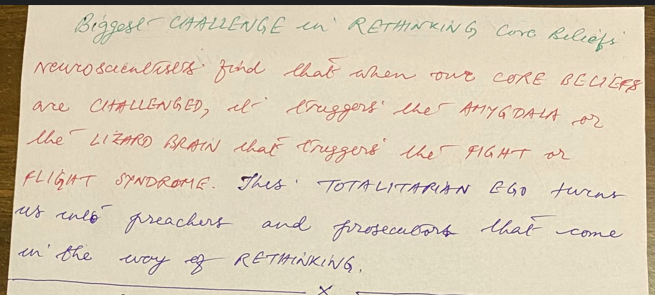 Biggest CHALLENGE in RETHINKING Core Beliefs
Neuroscientists find that when our CORE BELIEFS
are CHALLENGED, it triggers the AMYGDALA or
the LIZARD BRAIN that triggers the FIGHT or
FLIGHT SYNDROME. This TOTALITARIAN EGO turns
us into preachers and prosecutors that come
in the way of RETHINKING.
x